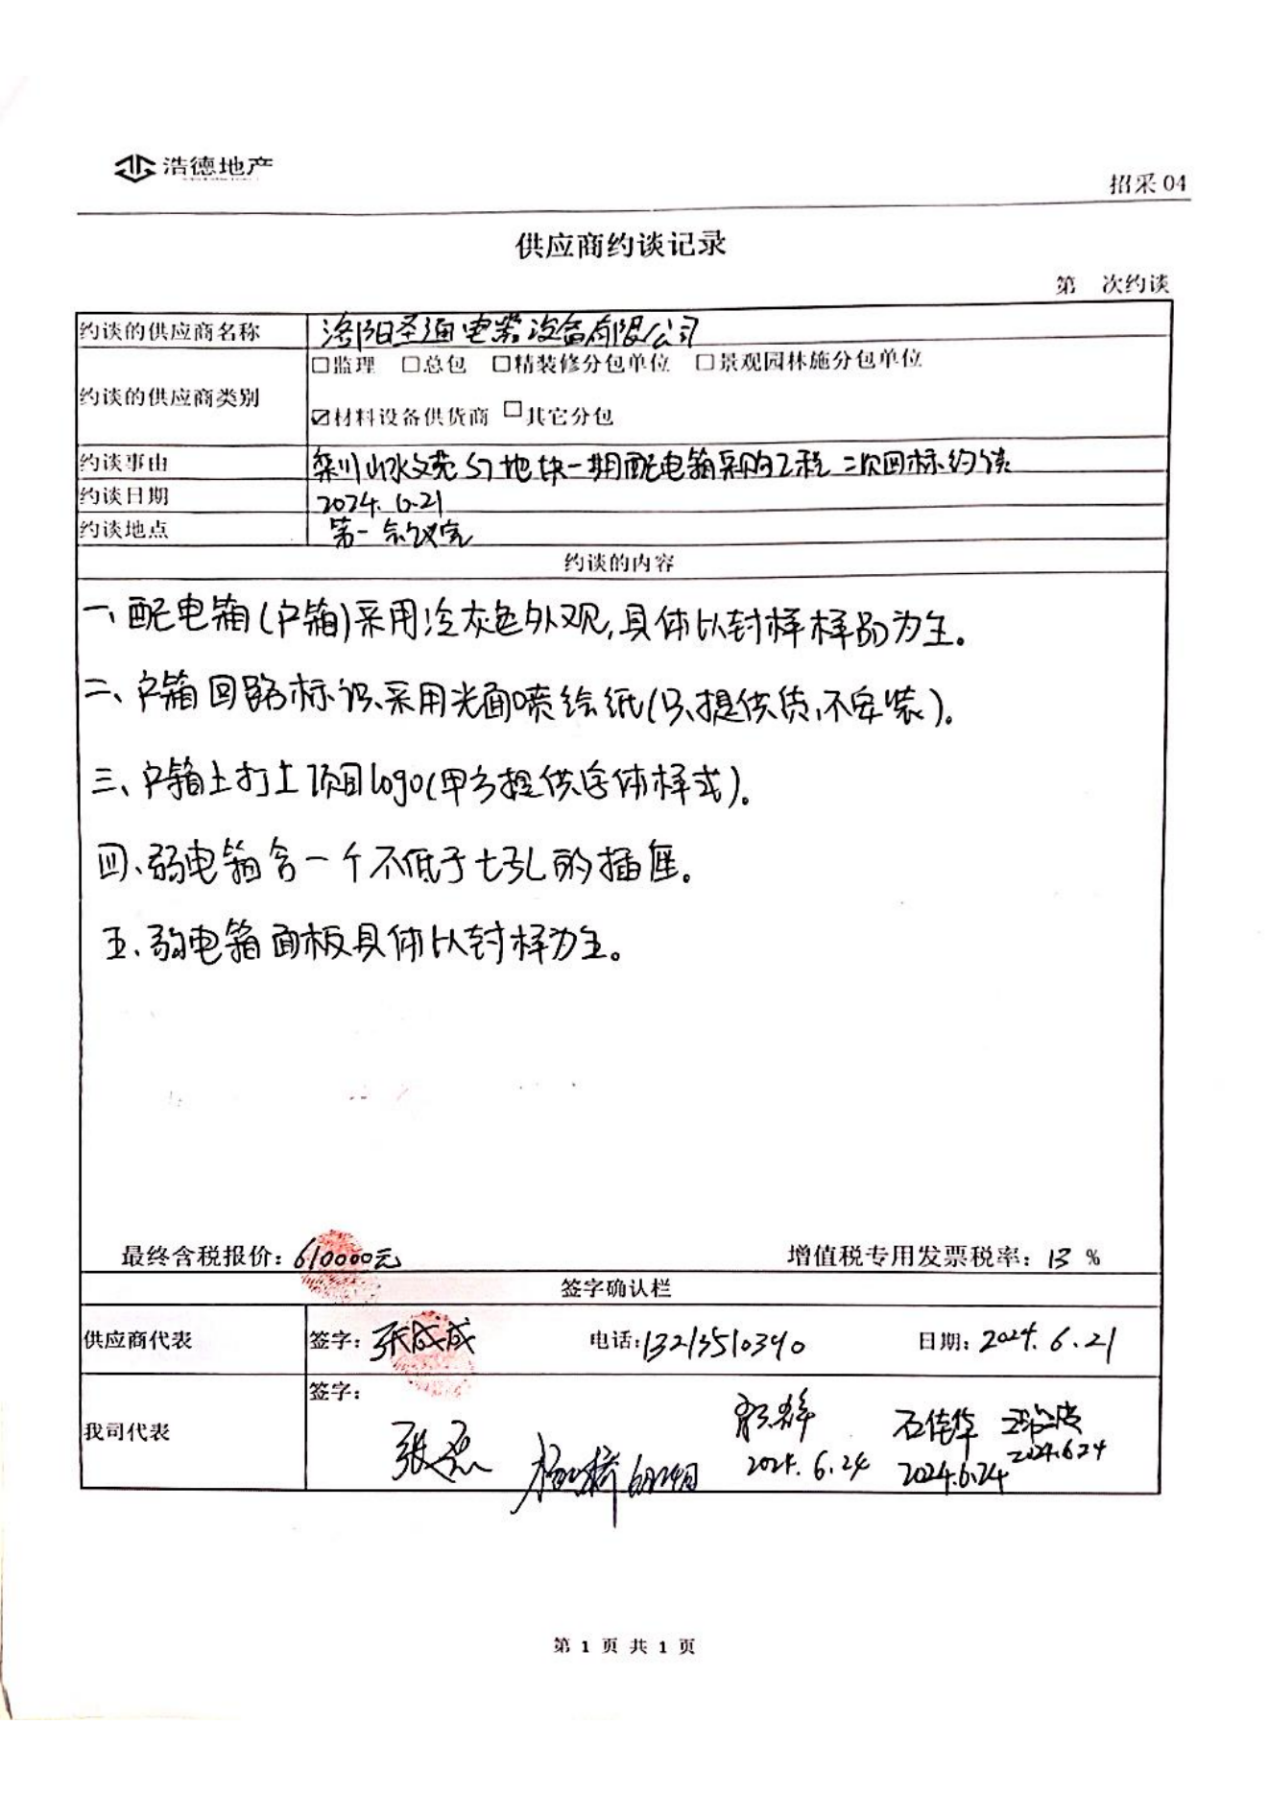 浩德地产
招采 04
供应商约谈记录
第 次约谈
约谈的供应商名称 洛阳圣通电器设备有限公司
约谈的供应商类别 □监理 □总包 □精装修分包单位 □景观园林施分包单位
☑材料设备供货商 □其它分包
约谈事由 栾川山水文苑S7地块一期配电箱采购工程二次回标约谈
约谈日期 2024.6.21
约谈地点 第一会议室
约谈的内容
一、配电箱(户箱)采用冷灰色外观,具体以封样样品为主。
二、户箱回路标识采用光面喷绘纸(只提供货,不安装)。
三、户箱上打上项目logo(甲方提供字体样式)。
四、弱电箱含一个不低于七孔的插座。
五、弱电箱面板具体以封样为主。
最终含税报价: 610000元 增值税专用发票税率: 13 %
签字确认栏
供应商代表 签字: 张成成 电话: 13213510390 日期: 2024.6.21
我司代表 签字:
张磊 石佳华
2024.6.24 2024.6.24 2024.6.24
第 1 页 共 1 页